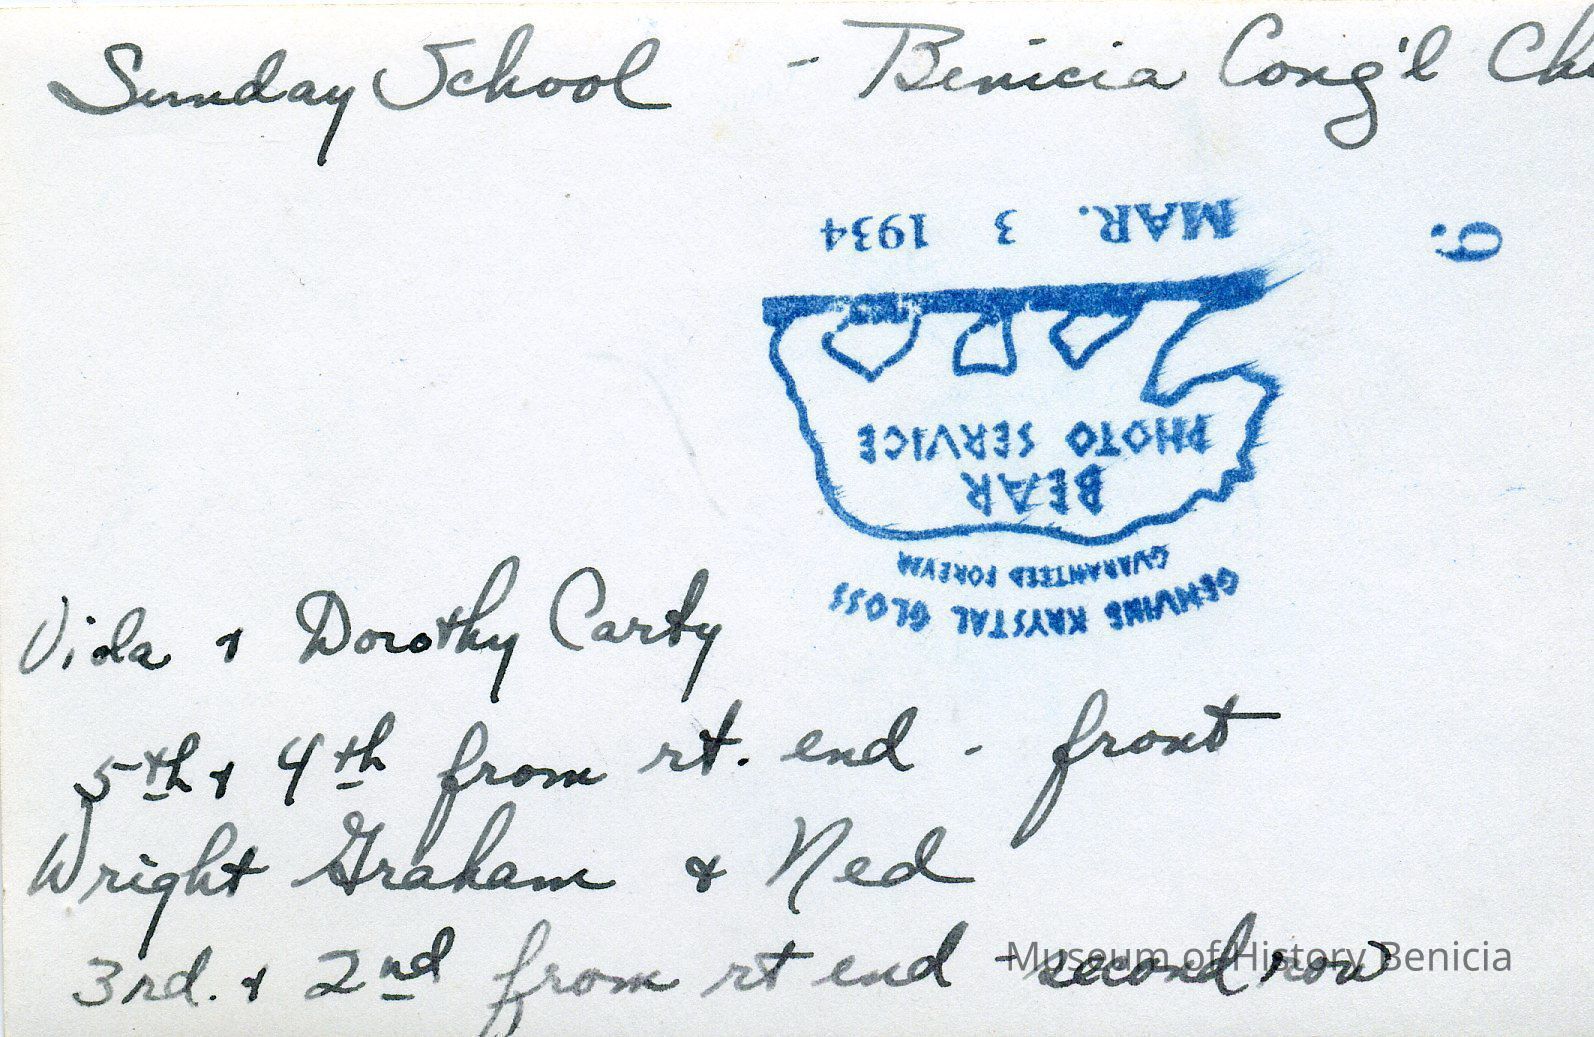 Sunday School - Benicia Cong'l Ch
MAR. 3 1934
9.
BEAR
PHOTO SERVICE
GUARANTEED FOREVER
GENUINE KRYSTAL GLOSS
Vida + Dorothy Carty
5th + 4th from rt. end - front
Wright Graham & Ned
3rd. + 2nd from rt end - second row
Museum of History Benicia